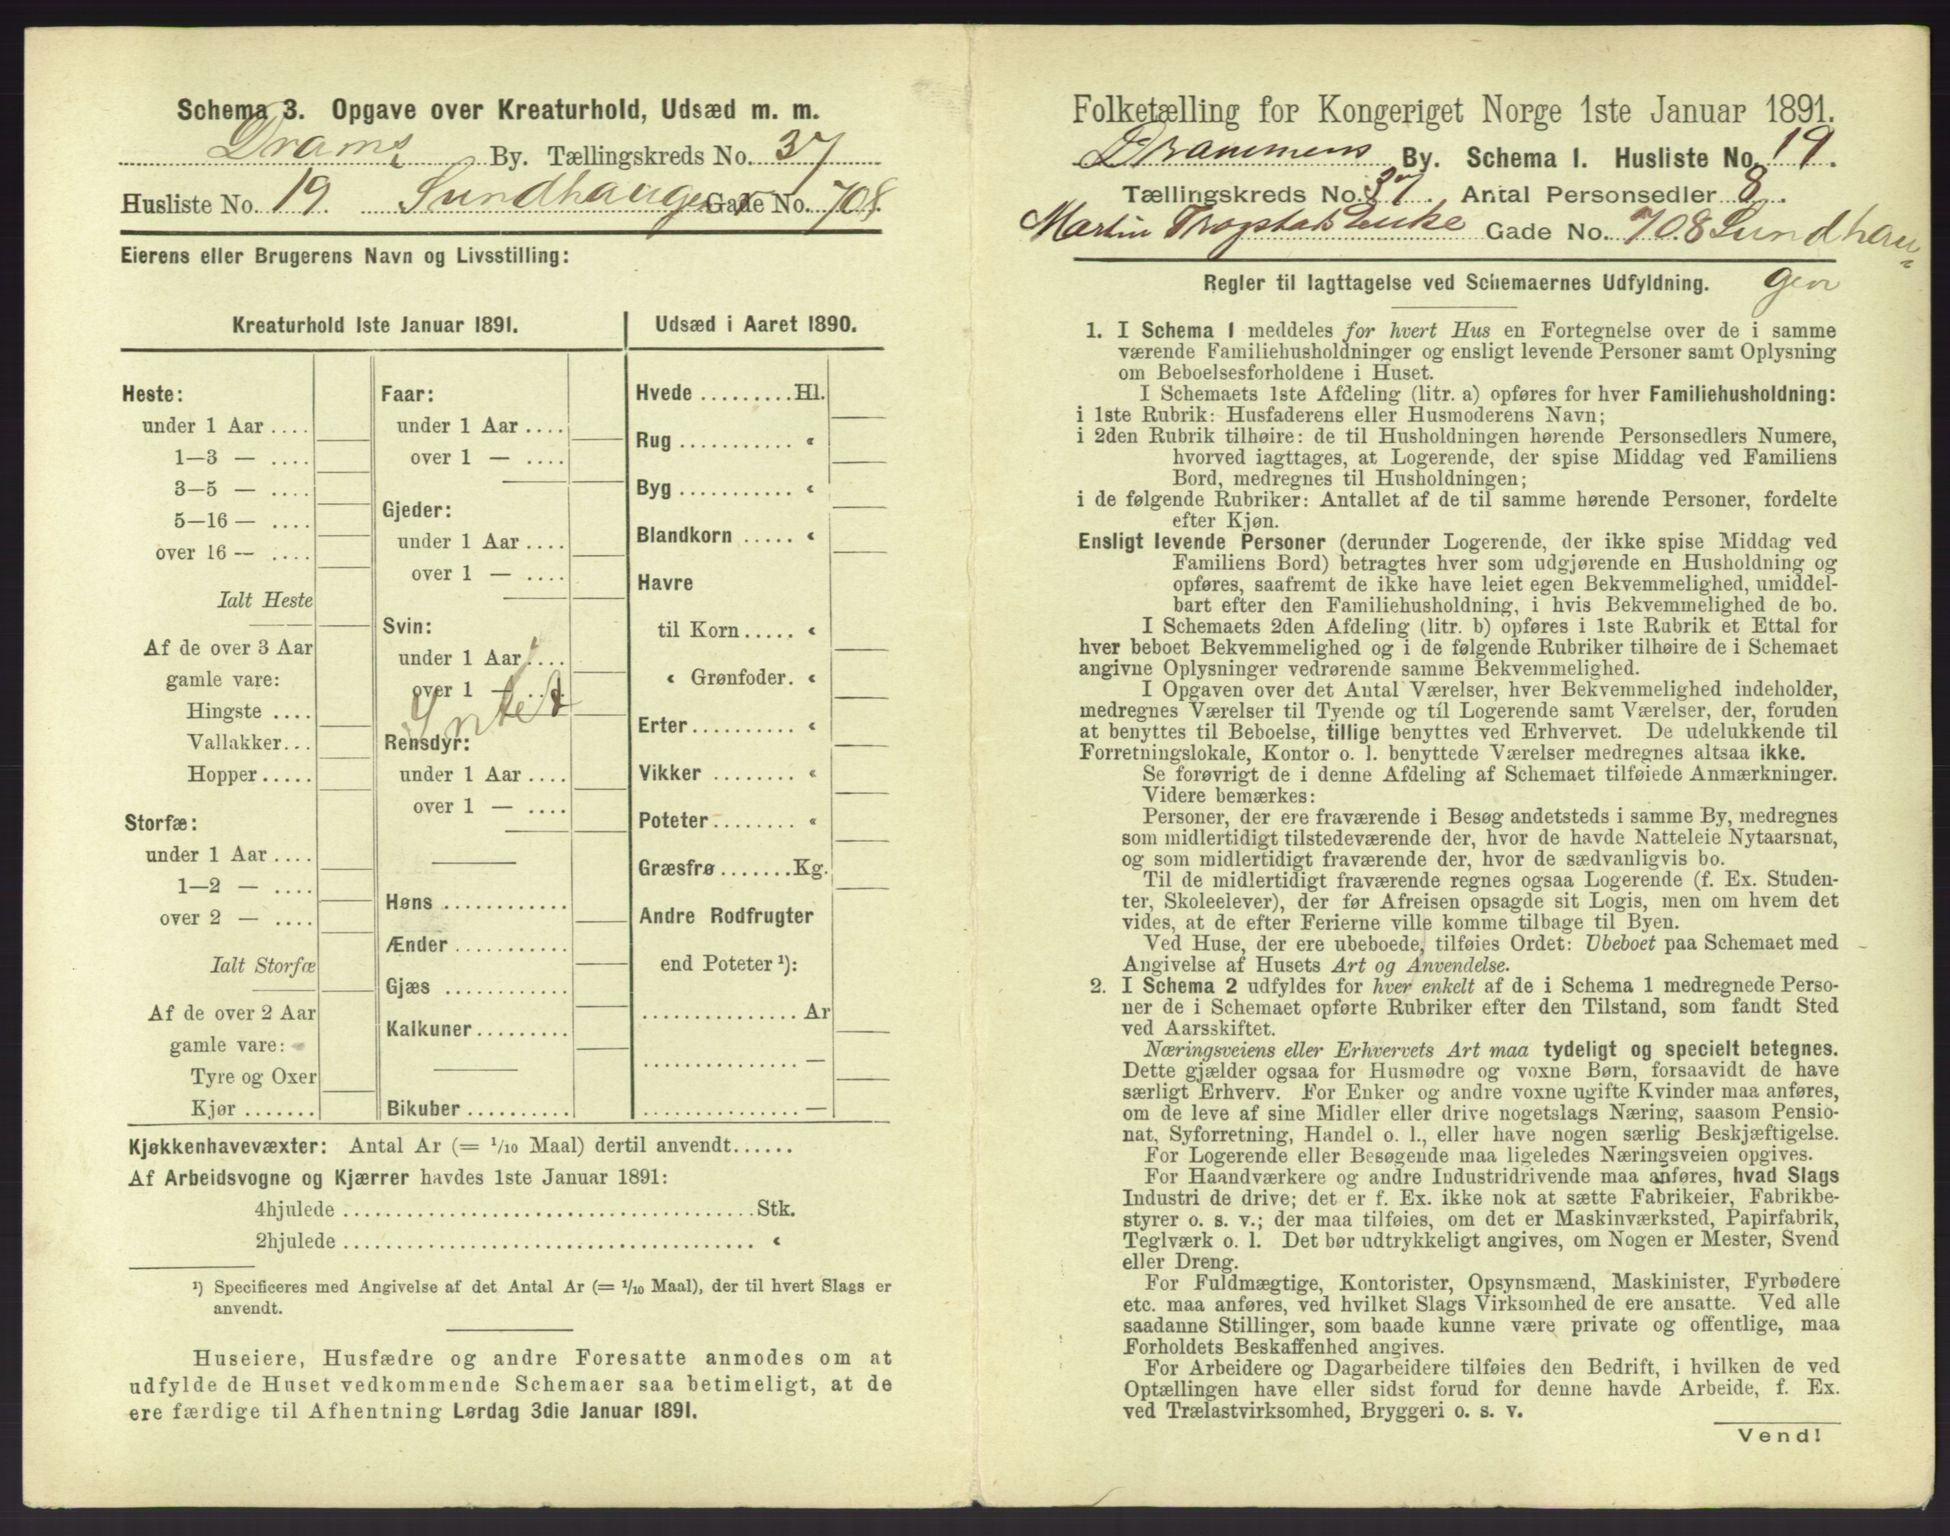 Schema 3. Opgave over Kreaturhold, Udsæd m. m.
Drams By. Tællingskreds No. 37
Husliste No. 19 Sundhaugen Gade No. 708.
Eierens eller Brugerens Navn og Livsstilling:
Kreaturhold 1ste Januar 1891.
Heste:
under 1 Aar ....
1—3 — ....
3—5 — ....
5—16 — ....
over 16 — ....
Ialt Heste
Af de over 3 Aar
gamle vare:
Hingste ....
Vallakker...
Hopper .....
Storfæ:
under 1 Aar ....
1—2 — ....
over 2 — ....
Ialt Storfæ
Af de over 2 Aar
gamle vare:
Tyre og Oxer
Kjør .......
Faar:
under 1 Aar ....
over 1 — ....
Gjeder:
under 1 Aar ....
over 1 — ....
Svin:
under 1 Aar ....
over 1 — ....
Intet
Rensdyr:
under 1 Aar ....
over 1 — ....
Høns ...........
Ænder ..........
Gjæs ...........
Kalkuner ........
Bikuber .........
Udsæd i Aaret 1890.
Hvede .........Hl.
Rug ........... «
Byg ........... «
Blandkorn ..... «
Havre
til Korn ..... «
« Grønfoder. «
Erter ......... «
Vikker ........ «
Poteter ........ «
Græsfrø .......Kg.
Andre Rodfrugter
end Poteter ¹):
............... Ar
............... —
............... —
Kjøkkenhavevæxter: Antal Ar (= 1/10 Maal) dertil anvendt......
Af Arbeidsvogne og Kjærrer havdes 1ste Januar 1891:
4hjulede ........................................Stk.
2hjulede ........................................ «
¹) Specificeres med Angivelse af det Antal Ar (= 1/10 Maal), der til hvert Slags er
anvendt.
Huseiere, Husfædre og andre Foresatte anmodes om at
udfylde de Huset vedkommende Schemaer saa betimeligt, at de
ere færdige til Afhentning Lørdag 3die Januar 1891.
Folketælling for Kongeriget Norge 1ste Januar 1891.
Drammens By. Schema 1. Husliste No. 19.
Tællingskreds No. 37. Antal Personsedler 8.
Martin Trogstads Enke Gade No. 708 Sundhau-
gen
Regler til Iagttagelse ved Schemaernes Udfyldning.
1. I Schema 1 meddeles for hvert Hus en Fortegnelse over de i samme
værende Familiehusholdninger og ensligt levende Personer samt Oplysning
om Beboelsesforholdene i Huset.
I Schemaets 1ste Afdeling (litr. a) opføres for hver Familiehusholdning:
i 1ste Rubrik: Husfaderens eller Husmoderens Navn;
i 2den Rubrik tilhøire: de til Husholdningen hørende Personsedlers Numere,
hvorved iagttages, at Logerende, der spise Middag ved Familiens
Bord, medregnes til Husholdningen;
i de følgende Rubriker: Antallet af de til samme hørende Personer, fordelte
efter Kjøn.
Ensligt levende Personer (derunder Logerende, der ikke spise Middag ved
Familiens Bord) betragtes hver som udgjørende en Husholdning og
opføres, saafremt de ikke have leiet egen Bekvemmelighed, umiddel-
bart efter den Familiehusholdning, i hvis Bekvemmelighed de bo.
I Schemaets 2den Afdeling (litr. b) opføres i 1ste Rubrik et Ettal for
hver beboet Bekvemmelighed og i de følgende Rubriker tilhøire de i Schemaet
angivne Oplysninger vedrørende samme Bekvemmelighed.
I Opgaven over det Antal Værelser, hver Bekvemmelighed indeholder,
medregnes Værelser til Tyende og til Logerende samt Værelser, der, foruden
at benyttes til Beboelse, tillige benyttes ved Erhvervet. De udelukkende til
Forretningslokale, Kontor o. l. benyttede Værelser medregnes altsaa ikke.
Se forøvrigt de i denne Afdeling af Schemaet tilføiede Anmærkninger.
Videre bemærkes:
Personer, der ere fraværende i Besøg andetsteds i samme By, medregnes
som midlertidigt tilstedeværende der, hvor de havde Natteleie Nytaarsnat,
og som midlertidigt fraværende der, hvor de sædvanligvis bo.
Til de midlertidigt fraværende regnes ogsaa Logerende (f. Ex. Studen-
ter, Skoleelever), der før Afreisen opsagde sit Logis, men om hvem det
vides, at de efter Ferierne ville komme tilbage til Byen.
Ved Huse, der ere ubeboede, tilføies Ordet: Ubeboet paa Schemaet med
Angivelse af Husets Art og Anvendelse.
2. I Schema 2 udfyldes for hver enkelt af de i Schema 1 medregnede Perso-
ner de i Schemaet opførte Rubriker efter den Tilstand, som fandt Sted
ved Aarsskiftet.
Næringsveiens eller Erhvervets Art maa tydeligt og specielt betegnes.
Dette gjælder ogsaa for Husmødre og voxne Børn, forsaavidt de have
særligt Erhverv. For Enker og andre voxne ugifte Kvinder maa anføres,
om de leve af sine Midler eller drive nogetslags Næring, saasom Pensio-
nat, Syforretning, Handel o. l., eller have nogen særlig Beskjæftigelse.
For Logerende eller Besøgende maa ligeledes Næringsveien opgives.
For Haandværkere og andre Industridrivende maa anføres, hvad Slags
Industri de drive; det er f. Ex. ikke nok at sætte Fabrikeier, Fabrikbe-
styrer o. s. v.; der maa tilføies, om det er Maskinværksted, Papirfabrik,
Teglværk o. l. Det bør udtrykkeligt angives, om Nogen er Mester, Svend
eller Dreng.
For Fuldmægtige, Kontorister, Opsynsmænd, Maskinister, Fyrbødere
etc. maa anføres, ved hvilket Slags Virksomhed de ere ansatte. Ved alle
saadanne Stillinger, som baade kunne være private og offentlige, maa
Forholdets Beskaffenhed angives.
For Arbeidere og Dagarbeidere tilføies den Bedrift, i hvilken de ved
Optællingen have eller sidst forud for denne havde Arbeide, f. Ex.
ved Trælastvirksomhed, Bryggeri o. s. v.
Vend!